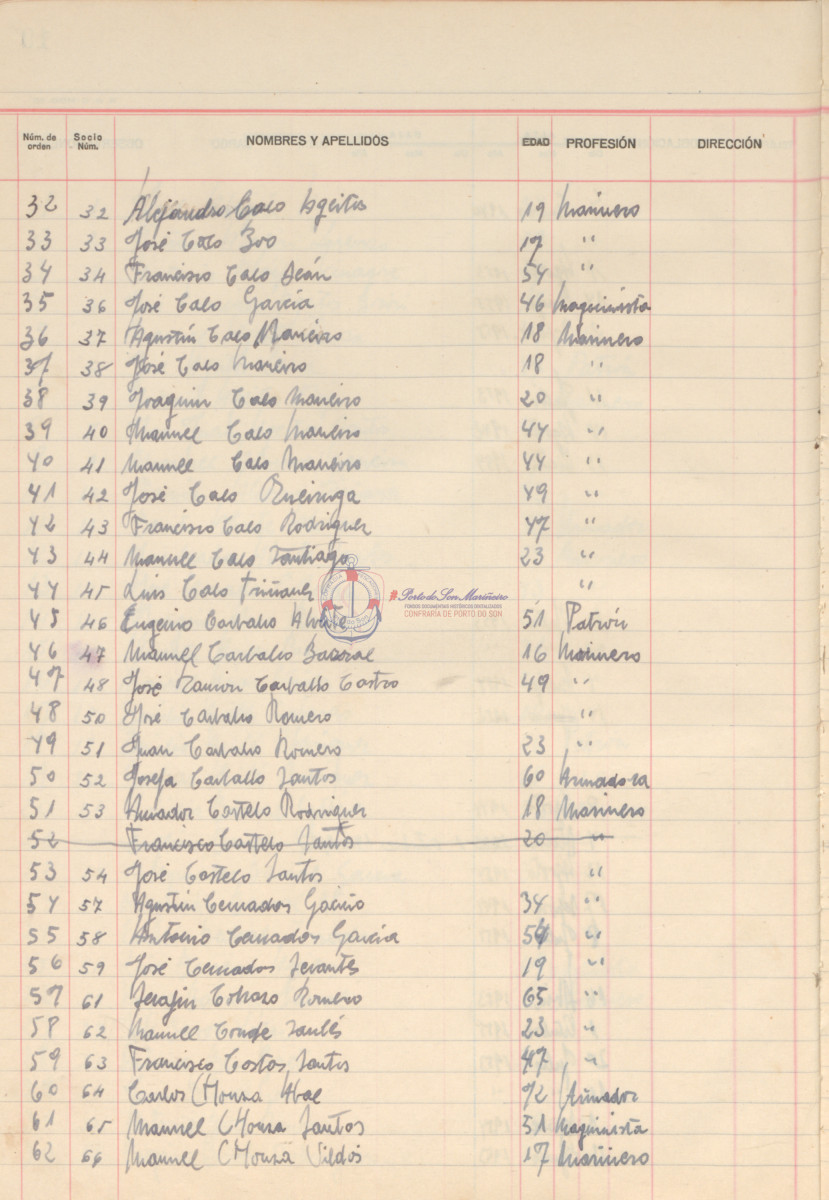 Núm. de orden Socio Núm. NOMBRES Y APELLIDOS EDAD PROFESIÓN DIRECCIÓN
32 32 Alejandro Calo Ageitos 19 Marinero
33 33 José Calo Boo 17 "
34 34 Francisco Calo Deán 54 "
35 36 José Calo García 46 Maquinista
36 37 Agustín Calo Maneiro 18 Marinero
37 38 José Calo Maneiro 18 "
38 39 Joaquin Calo Maneiro 20 "
39 40 Manuel Calo Maneiro 44 "
40 41 Manuel Calo Maneiro 44 "
41 42 José Calo 49 "
42 43 Francisco Calo Rodriguez 47 "
43 44 Manuel Calo Santiago 23 "
44 45 Luis Calo Triñanes "
45 46 Eugenio Carballo 51 Patrón
46 47 Manuel Carballo 16 Marinero
47 48 José Ramón Carballo Castro 49 "
48 50 José Carballo Romero "
49 51 Juan Carballo Romero 23 "
50 52 Josefa Carballo Santos 60 Armadora
51 53 Amador Castelo Rodriguez 18 Marinero
52 Francisco Castelo Santos 20 "
53 54 José Castelo Santos "
54 57 Agustín Cernados 34 "
55 58 Antonio Cernados García "
56 59 José Cernados 19 "
57 61 Serafin Romero 65 "
58 62 Manuel Conde 23 "
59 63 Francisco Costas Santos 47 "
60 64 Carlos Chouza 72 Armador
61 65 Manuel Chouza Santos 51 Maquinista
62 66 Manuel Chouza 17 Marinero
#PortodoSonMariñeiro
FONDOS DOCUMENTAIS HISTÓRICOS DIXITALIZADOS
CONFRARÍA DE PORTO DO SON